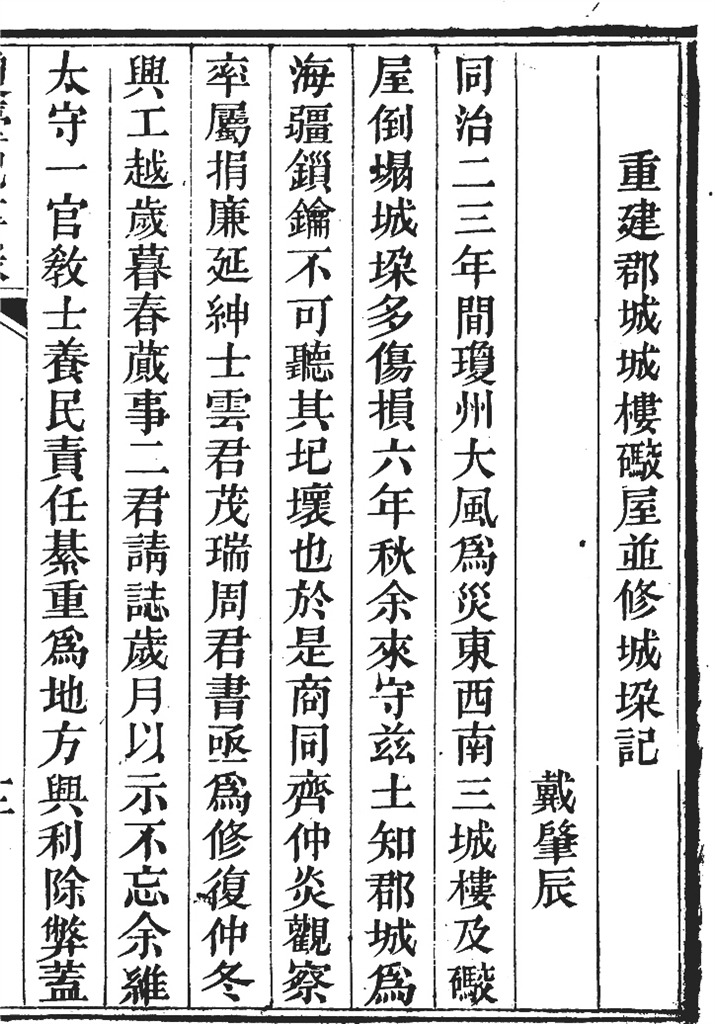 重建郡城城樓礮屋並修城垜記
戴肇辰
同治二三年間瓊州大風爲災東西南三城樓及礮
屋倒塌城垜多傷損六年秋余來守兹土知郡城爲
海疆鎖鑰不可聽其圮壞也於是商同齊仲炎觀察
率屬捐廉延紳士雲君茂瑞周君書亟爲修復仲冬
興工越歲暮春蕆事二君請誌歲月以示不忘余維
太守一官敎士養民責任綦重爲地方興利除弊蓋